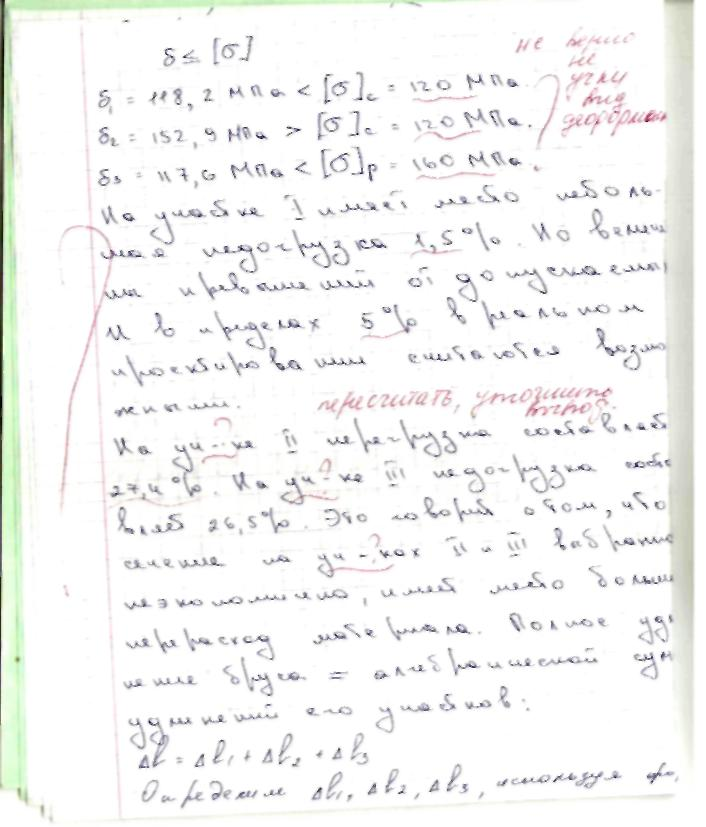 δ ≤ [σ]
не верно
не
учли
вид
деформац
δ₁ = 118,2 МПа < [σ]с = 120 МПа.
δ₂ = 152,9 МПа > [σ]с = 120 МПа.
δ₃ = 117,6 МПа < [σ]р = 160 МПа.
На участке I имеет место неболь-
шая недогрузка 1,5%. Но величи
ны превышений от допускаемы
и в пределах 5% в реальном
проектировании считаются возмо
жными.
пересчитать, уточнить
вывод.
На уч-ке II перегрузка составляет
?
27,4%. На уч-ке III недогрузка соста
?
вляет 26,5%. Это говорит о том, что
сечение на уч-ках II и III выбрано
?
неэкономично, имеет место больши
перерасход материала. Полное удл
нение бруса = алгебраической сум
удлинений его участков:
Δℓ = Δℓ₁ + Δℓ₂ + Δℓ₃
Определим Δℓ₁, Δℓ₂, Δℓ₃, используя фо